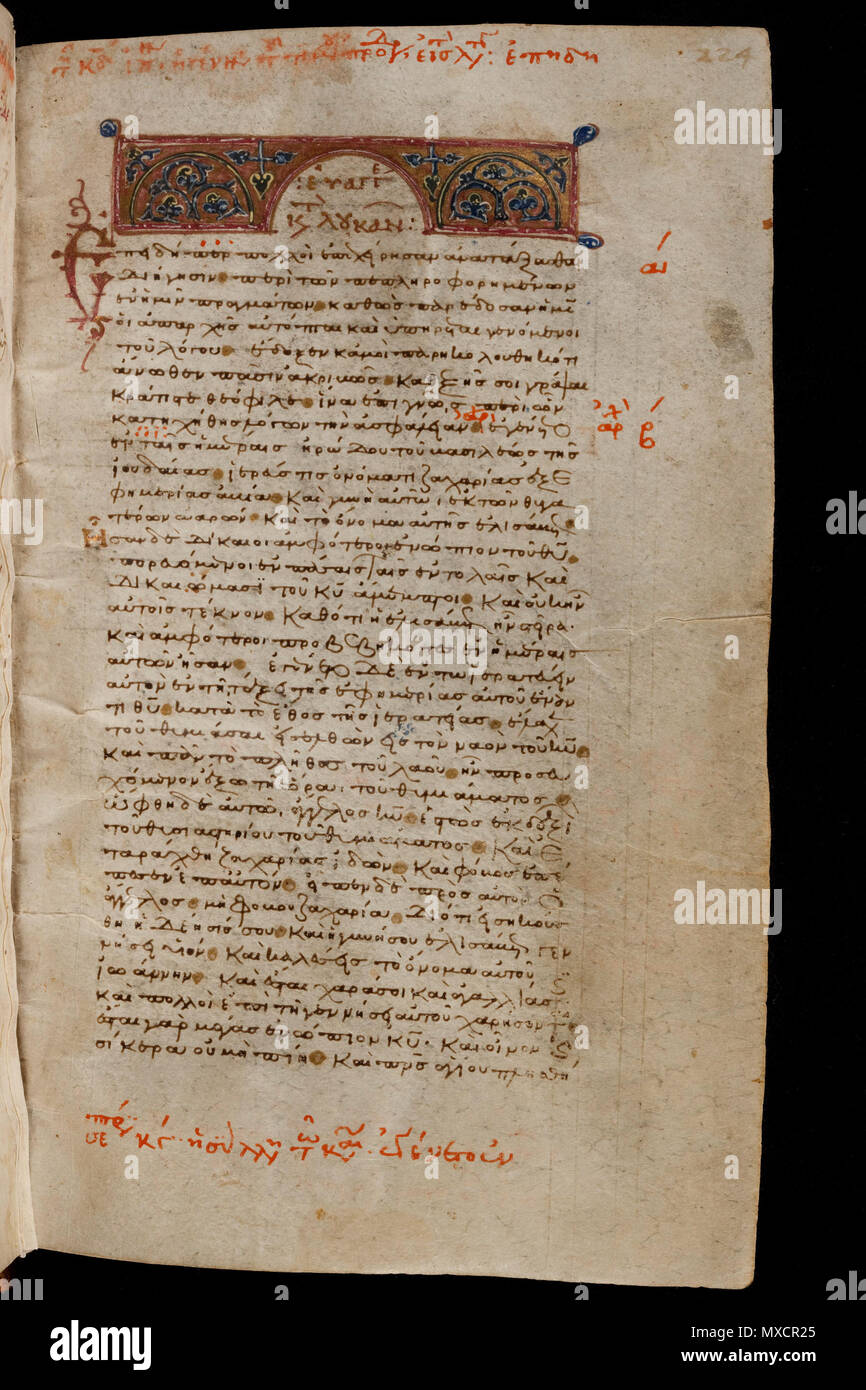 224
εὐαγγε
κτ λουκαν:
Επειδήπερ πολλοὶ ἐπεχείρησαν ἀνατάξασθαι
διήγησιν περὶ τῶν πεπληροφορημένων
ἐν ἡμῖν πραγμάτων καθὼς παρέδοσαν ἡμῖ
οἱ ἀπαρχῆς αὐτόπται καὶ ὑπηρέται γενόμενοι
τοῦ λόγου ἔδοξεν κἀμοὶ παρηκολουθηκότι
ἄνωθεν πᾶσιν ἀκριβῶς καθεξῆς σοι γράψαι
κράτιστε θεόφιλε ἵνα ἐπιγνῶς περὶ ὧν
κατηχήθης λόγων τὴν ἀσφάλειαν ἐγένετο
ἐν ταῖς ἡμέραις ἡρώδου τοῦ βασιλέως τῆς
ἰουδαίας ἱερεύς τις ὀνόματι ζαχαρίας ἐξ ἐ
φημερίας ἀβιά καὶ ἡ γυνὴ αὐτῶ ἐκ τῶν θυγα
τέρων ἀαρών καὶ τὸ ὄνομα αὐτῆς ἐλισάβετ
ἦσαν δὲ δίκαιοι ἀμφότεροι ἐνώπιον τοῦ θῦ
πορευόμενοι ἐν πάσαις ταῖς ἐντολαῖς καὶ
δικαιώμασι τοῦ κῦ ἄμεμπτοι καὶ οὐκ ἦν
αὐτοῖς τέκνον καθότι ἡ ἐλισάβετ ἦν στεῖρα
καὶ ἀμφότεροι προβεβηκότες ἐν ἡμέραις
αὐτῶν ἦσαν ἐγένετο δὲ ἐν τῶ ἱερατεύειν
αὐτὸν ἐν τῆ τάξει τῆς ἐφημερίας αὐτοῦ ἔναν
τι θῦ κατὰ τὸ ἔθος τῆς ἱερατείας ἔλαχε
τοῦ θυμιάσαι εἰσελθὼν εἰς τὸν ναὸν τοῦ κῦ
καὶ πᾶν τὸ πλῆθος τοῦ λαοῦ ἦν προσευ
χόμενον ἔξω τῆ ὥρα τοῦ θυμιάματος
ὤφθη δὲ αὐτῶ ἄγγελος κῦ ἑστὼς ἐκ δεξιῶ
τοῦ θυσιαστηρίου τοῦ θυμιάματος καὶ ἐ
ταράχθη ζαχαρίας ἰδών καὶ φόβος ἐπέ
πεσεν ἐπαυτόν εἶπεν δὲ πρὸς αὐτὸν ὁ
ἄγγελος μὴ φοβοῦ ζαχαρία διότι εἰσηκούσ
θη ἡ δέησίς σου καὶ ἡ γυνή σου ἐλισάβετ γεν
νήσει υἱόν καὶ καλέσεις τὸ ὄνομα αὐτοῦ
ἰωάννην καὶ ἔσται χαρά σοι καὶ ἀγαλλίασις
καὶ πολλοὶ ἐπὶ τῆ γεννήσει αὐτοῦ χαρήσονται
ἔσται γὰρ μέγας ἐνώπιον κῦ καὶ οἶνον καὶ
σίκερα οὐ μὴ πίη καὶ πνς ἁγίου πλησθή
alamy
Image ID: MXCR25
www.alamy.com